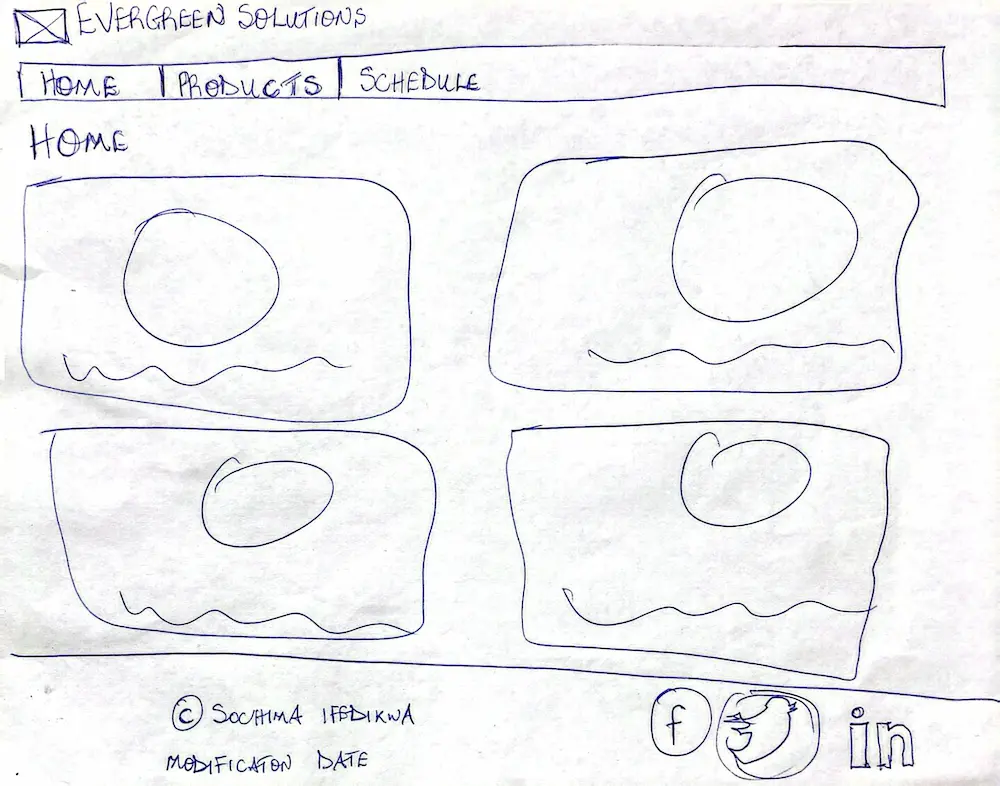 EVERGREEN SOLUTIONS
HOME PRODUCTS SCHEDULE
HOME
© SOCHIMA IFEDIKWA
MODIFICATON DATE
f in